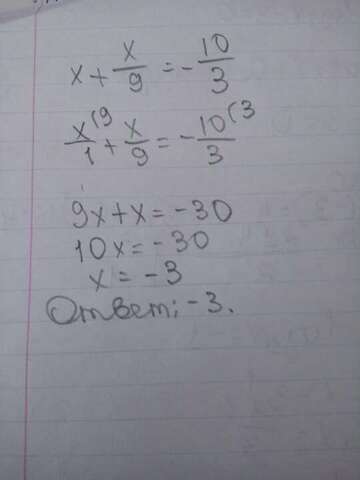 x + x/9 = -10/3
x/1 (9 + x/9 = -10/3 (3
9x+x = -30
10x = -30
x = -3
Ответ: -3.